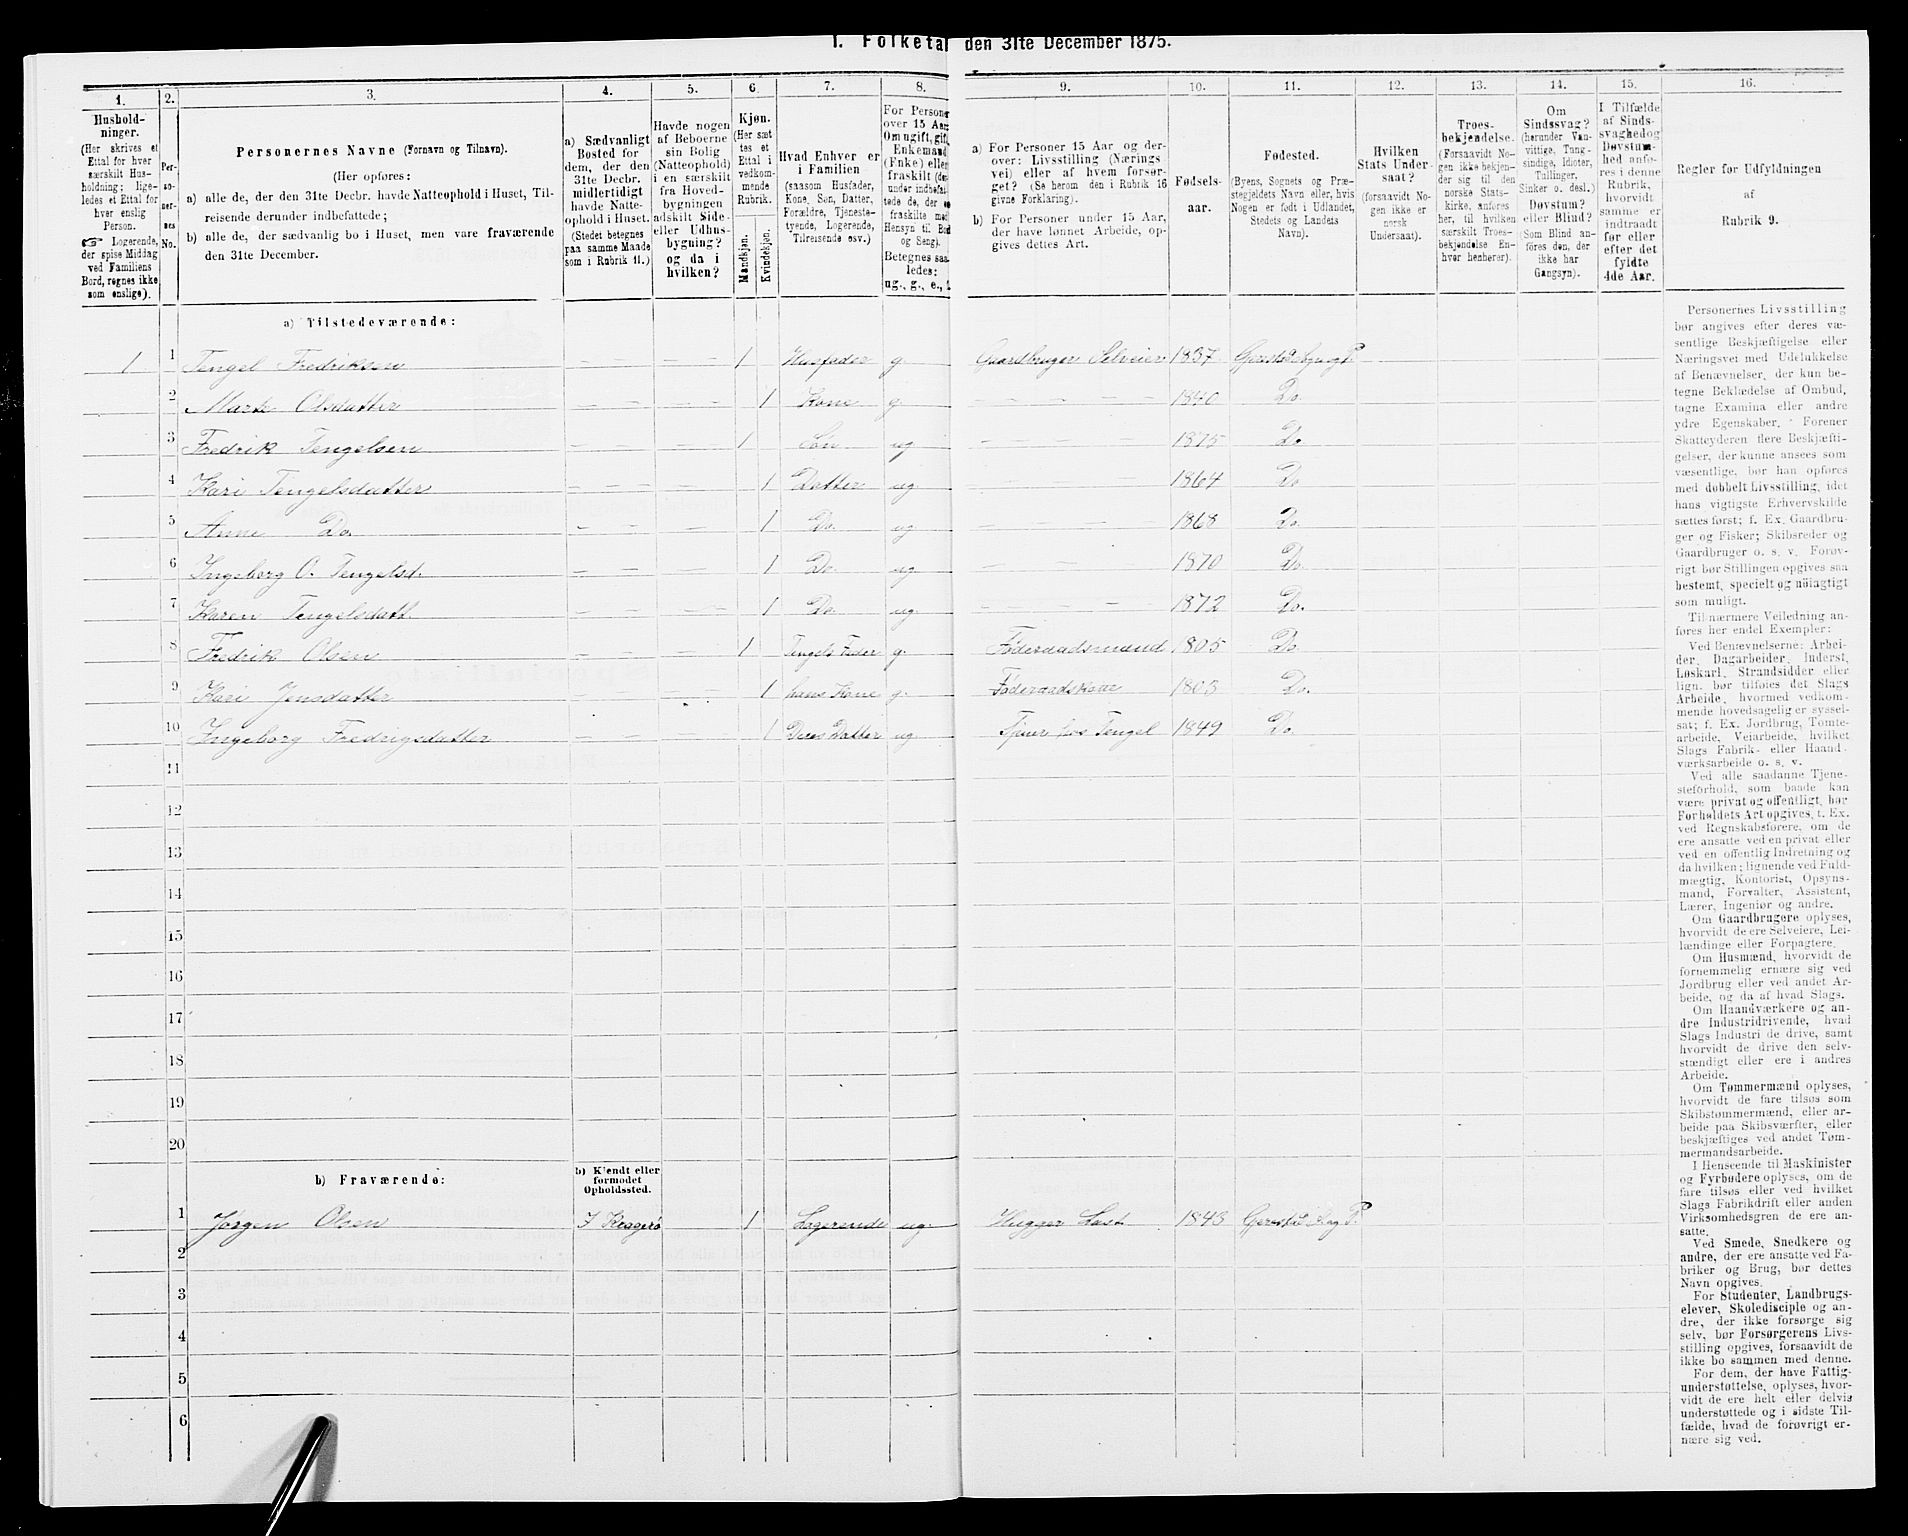 1. Folketal den 31te December 1875.
1. 2. 3. 4. 5. 6. 7. 8. 9. 10. 11. 12. 13. 14. 15. 16.
Hushold-
ninger.
(Her skrives et
Ettal for hver
særskilt Hus-
holdning; lige-
ledes et Ettal for
hver enslig
Person.
Logerende,
der spise Middag
ved Familiens
Bord, regnes ikke
som enslige).
Per-
so-
ner-
nes
No.
Personernes Navne (Fornavn og Tilnavn).
(Her opføres:
a) alle de, der den 31te Decbr. havde Natteophold i Huset, Til-
reisende derunder indbefattede;
b) alle de, der sædvanlig bo i Huset, men vare fraværende
den 31te December.
a) Sædvanligt
Bosted for
dem, der den
31te Decbr.
midlertidigt
havde Natte-
ophold i Huset.
(Stedet betegnes
paa samme Maade
som i Rubrik 11.)
Havde nogen
af Beboerne
sin Bolig
(Natteophold)
i en særskilt
fra Hoved-
bygningen
adskilt Side-
eller Udhus-
bygning?
og da i
hvilken?
Kjøn.
(Her sæt-
tes et
Ettal i
vedkom-
mende
Rubrik.)
Mandkjøn.
Kvindekjøn.
Hvad Enhver er
i Familien
(saasom Husfader,
Kone, Søn, Datter,
Forældre, Tjeneste-
tyende, Logerende,
Tilreisende osv.)
For Personer
over 15 Aar:
Om ugift, gift,
Enkemand
(Enke) eller
fraskilt
Betegnes saa-
ledes:
ug., g., e.,
a) For Personer 15 Aar og der-
over: Livsstilling (Nærings-
vei) eller af hvem forsør-
get? (Se herom den i Rubrik 16
givne Forklaring).
b) For Personer under 15 Aar,
der have lønnet Arbeide, op-
gives dettes Art.
Fødsels-
aar.
Fødested.
(Byens, Sognets og Præ-
stegjeldets Navn eller, hvis
Nogen er født i Udlandet,
Stedets og Landets
Navn).
Hvilken
Stats Under-
saat?
(forsaavidt No-
gen ikke er
norsk
Undersaat).
Troes-
bekjendelse.
(Forsaavidt No-
gen ikke bekjen-
der sig til den
norske Stats-
kirke, anføres
her, til hvilken
særskilt Troes-
bekjendelse En-
hver henhører).
Om
Sindssvag?
(herunder Van-
vittige, Tung-
sindige, Idioter,
Tullinger,
Sinker o. desl.)
Døvstum?
eller Blind?
(Som Blind an-
føres den, der
ikke har
Gangsyn).
I Tilfælde
af Sinds-
svaghed og
Døvstum-
hed anfø-
res i denne
Rubrik,
hvorvidt
samme er
indtraadt
før eller
efter det
fyldte
4de Aar.
Regler for Udfyldningen
af
Rubrik 9.
a) Tilstedeværende:
1 1 Tengel Fredriksen — — — — 1 Husfader g. Gaardbruger Selveier 1837
2 Marte Olsdatter — — — — 1 Kone g. — — — 1840 Do.
3 Fredrik Tengelsen — — — — 1 Søn ug — — — 1875 Do
4 Kari Tengelsdatter — — — — 1 Datter ug — — — 1864 Do
5 Anne Do. — — — — 1 Do. ug — — — 1868 Do.
6 Ingeborg O. Tengelsd. — — — — 1 Do ug. — — — 1870 Do.
7 Karen Tengelsdatt. — — — — 1 Do. ug — — — 1872 Do.
8 Fredrik Olsen — — — — 1 Tengels Fader g. Føderaadsmand 1805 Do.
9 Kari Jensdatter — — — — 1 hans Kone g. Føderaadskone 1805 Do.
10 Ingeborg Fredrigsdatter 1 Deres Datter ug Tjener hos Tengel 1849 Do
11
12
13
14
15
16
17
18
19
20
b) Fraværende:
b) Kjendt eller
formodet
Opholdssted.
1 Jørgen Olsen I Kragerø 1 Logerende ug. Hugger Last 1843
2
3
4
5
6
Personernes Livsstilling
bør angives efter deres væ-
sentlige Beskjæftigelse eller
Næringsvei med Udelukkelse
af Benævnelser, der kun be-
tegne Beklædelse af Ombud,
tagne Examina eller andre
ydre Egenskaber. Forener
Skatteyderen flere Beskjæfti-
gelser, der kunne ansees som
væsentlige, bør han opføres
med dobbelt Livsstilling, idet
hans vigtigste Erhvervskilde
sættes først; f. Ex. Gaardbru-
ger og Fisker; Skibsreder og
Gaardbruger o. s. v. Forøv-
rigt bør Stillingen opgives saa
bestemt, specielt og nöiagtigt
som muligt.
Til nærmere Veiledning an-
føres her endel Exempler:
Ved Benævnelserne: Arbei-
der, Dagarbeider, Inderst,
Løskarl, Strandsidder eller
lign. bør tilføies det Slags
Arbeide, hvormed vedkom-
mende hovedsagelig er syssel-
sat; f. Ex. Jordbrug, Tomte-
arbeide, Veiarbeide, hvilket
Slags Fabrik- eller Haand-
værksarbeide o. s. v.
Ved alle saadanne Tjene-
steforhold, som baade kan
være privat og offentligt, bør
Forholdets Art opgives, t. Ex.
ved Regnskabsførere, om de
ere ansatte ved en privat eller
ved en offentlig Indretning og
da hvilken; lignende ved Fuld-
mægtig, Kontorist, Opsyns-
mand, Forvalter, Assistent,
Lærer, Ingeniør og andre.
Om Gaardbrugere oplyses,
hvorvidt de ere Selveiere, Lei-
lændinge eller Forpagtere.
Om Husmænd, hvorvidt de
fornemmelig ernære sig ved
Jordbrug eller ved andet Ar-
beide, og da af hvad Slags.
Om Haandværkere og an-
dre Industridrivende, hvad
Slags Industri de drive, samt
hvorvidt de drive den selv-
stændigt eller ere i andres
Arbeide.
Om Tømmermænd oplyses,
hvorvidt de fare tilsøs som
Skibstømmermænd, eller ar-
beide paa Skibsværfter, eller
beskjæftiges ved andet Tøm-
mermandsarbeide.
I Henseende til Maskinister
og Fyrbødere oplyses, om de
fare tilsøs eller ved hvilket
Slags Fabrikdrift eller anden
Virksomhedsgren de ere an-
satte.
Ved Smede, Snedkere og
andre, der ere ansatte ved Fa-
briker og Brug, bør dettes
Navn opgives.
For Studenter, Landbrugs-
elever, Skoledisciple og an-
dre, der ikke forsørge sig
selv, bør Forsørgerens Livs-
stilling opgives, forsaavidt de
ikke bo sammen med denne.
For dem, der have Fattig-
understøttelse, oplyses, hvor-
vidt de ere helt eller delvis
understøttede og i sidste Til-
fælde, hvad de forøvrigt er-
nære sig ved.